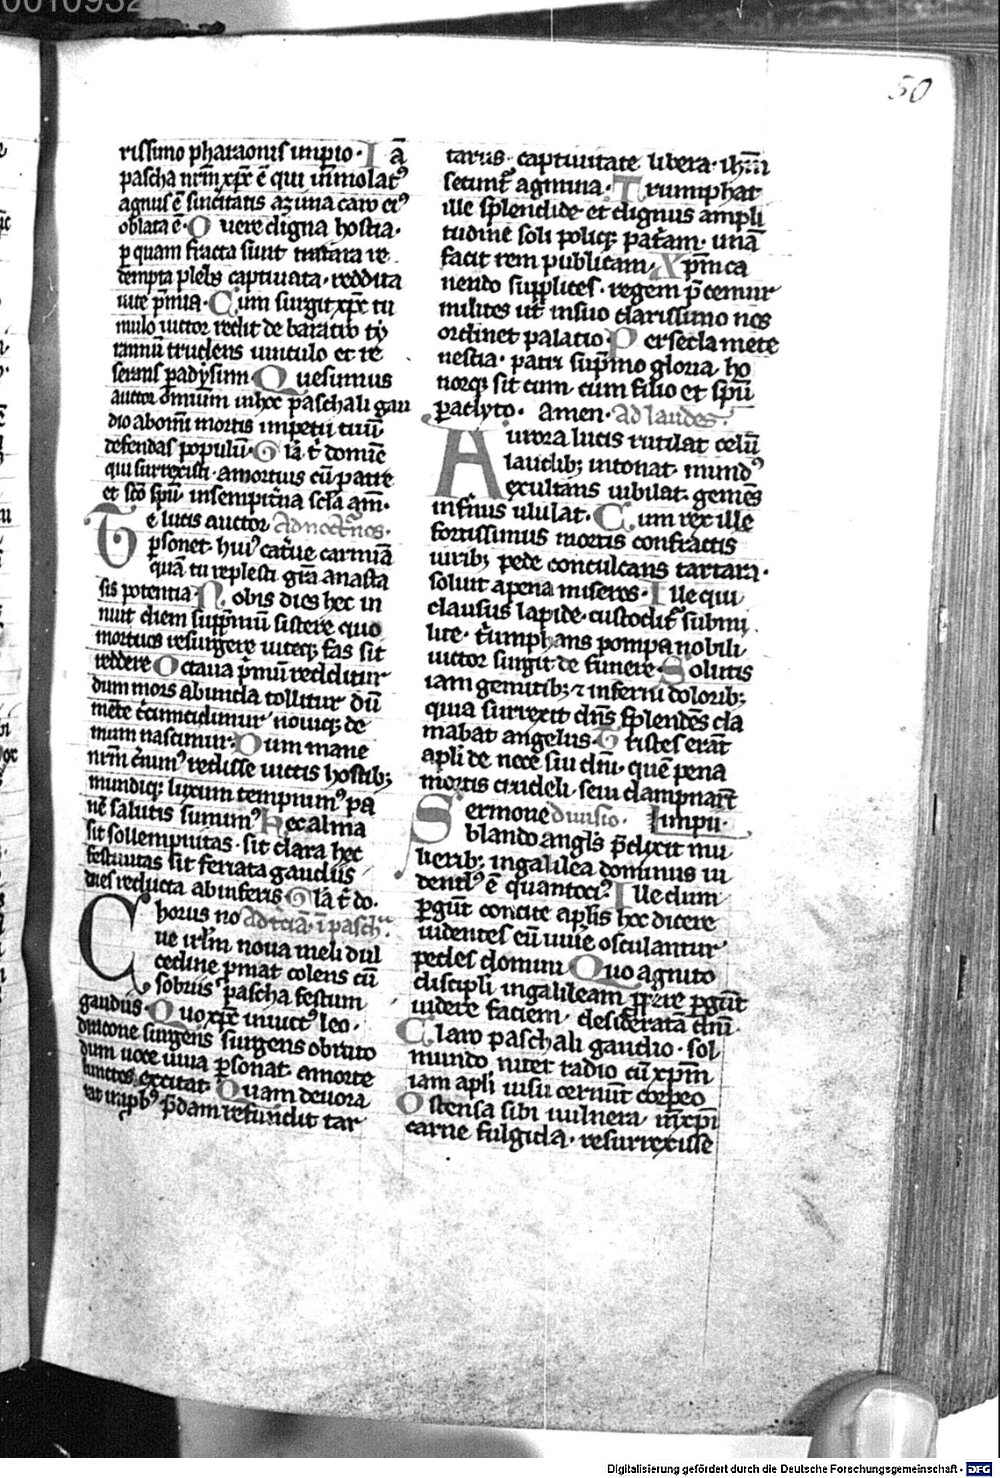 50
rissimo pharaonis imperio · Iā
pascha nr̄m xp̄c ē qui īmolatꝰ
agnus ē sinc̄itatis azima caro eiꝰ
oblata ē · O uere digna hostia ·
p quam fracta sunt tartara re
dempta plebs captiuata · reddita
uite p̄mia · Cum surgit xp̄c tu
mulo uictor redit de baratro ty
rannū trudens uinculo et re
serans padysum Quesumus
auctor om̄iūm in hoc paschali gau
dio ab om̄i mortis impetu tuū
defendas populū · Glā t̄ domīe
qui surrexisti · amortuis cū patre
et sc̄o sp̄u insempit̄na sc̄la am̄ ·
Te lucis auctor Ad noct̄nos ·
p̄sonet · huiꝰ cat̄ue carmīa
quā tu replesti gr̄a anasta
sis potentia · Nobis dies hec in
nuit diem supp̄mū sistere quo
mortuos resurgere uiteqꝫ fas sit
reddere Octaua p̄mū redditur
dum mors abunda tollitur dū
mēte c̄cumcidimur nouiqꝫ de
mum nascimur · Dum mane
nr̄m c̄nimꝰ redisse uictis hostibꝫ
mundiqꝫ luxum tempnimꝰ pa
nē salutis sumimꝰ Hec alma
sit sollempnitas · sit clara hec
festiuitas sit feriata gaudiis
dies reducta ab inferis Glā t̄ do ·
Chorus no Ad t̄ciā · ī pasch̄ ·
ue ir̄lm noua meli dul
cedine p̄mat colens cū
sobriis pascha festum
gaudiis · Quo xp̄c inuictꝰ leo ·
dracone surgens surgens obruto
dum uoce uiua p̄sonat · amorte
functos excitat · Quam deuora
rat improbꝰ p̄dam refundit tar
tarus · captiuitate libera · ih̄m
secunt̄ agmina · Triumphat
ille splendide et dignus ampli
tudine soli poliqꝫ pat̄am · unā
facit rem publicam · Xp̄m ca
nendo supplices · regem p̄cemur
milites ut insuo clarissimo nos
ordinet palatio Per secla mete
nestia · patri sup̄mo gloria · ho
norqꝫ sit cum · cum filio et sp̄u
paclyto · amen · Ad laudes ·
Aurora lucis rutilat celū
laudibꝫ intonat · mundꝰ
exultans iubilat · gemēs
infrnus ululat · Cum rex ille
fortissimus mortis confractis
uiribꝫ pede conculcans tartara ·
soluit apena miseros · Ille qui
clausus lapide · custodit̄ submi
lite · t̄umphans pompa nobili
uictor surgit de funere · Solutis
iam gemitibꝫ ⁊ inferni doloribꝫ
quia surrexit dn̄s splendēs cla
mabat angelus · Tristes erāt
apl̄i de nece sui dn̄i · quē pena
mortis crudeli · seui dampnar̄t
Sermone diuisio · Impii ·
blando angl̄s p̄dixit mu
lieribꝫ ingalilea dominus ui
dendꝰ ē quantociꝰ Ille dum
p̄gūt concite apl̄is hoc dicere
uidentes eū uiuē osculantur
pedes domini Quo agnito
discipli ingalileam p̄pre p̄gūt
uidere faciem · desideratā dn̄i ·
Claro paschali gaudio · sol
mundo nitet radio cū xp̄m
iam apl̄i uisu cernūt corpeo
Ostensa sibi uulnera · inxp̄i
carne fulgida · resurrexisse
Digitalisierung gefördert durch die Deutsche Forschungsgemeinschaft - DFG